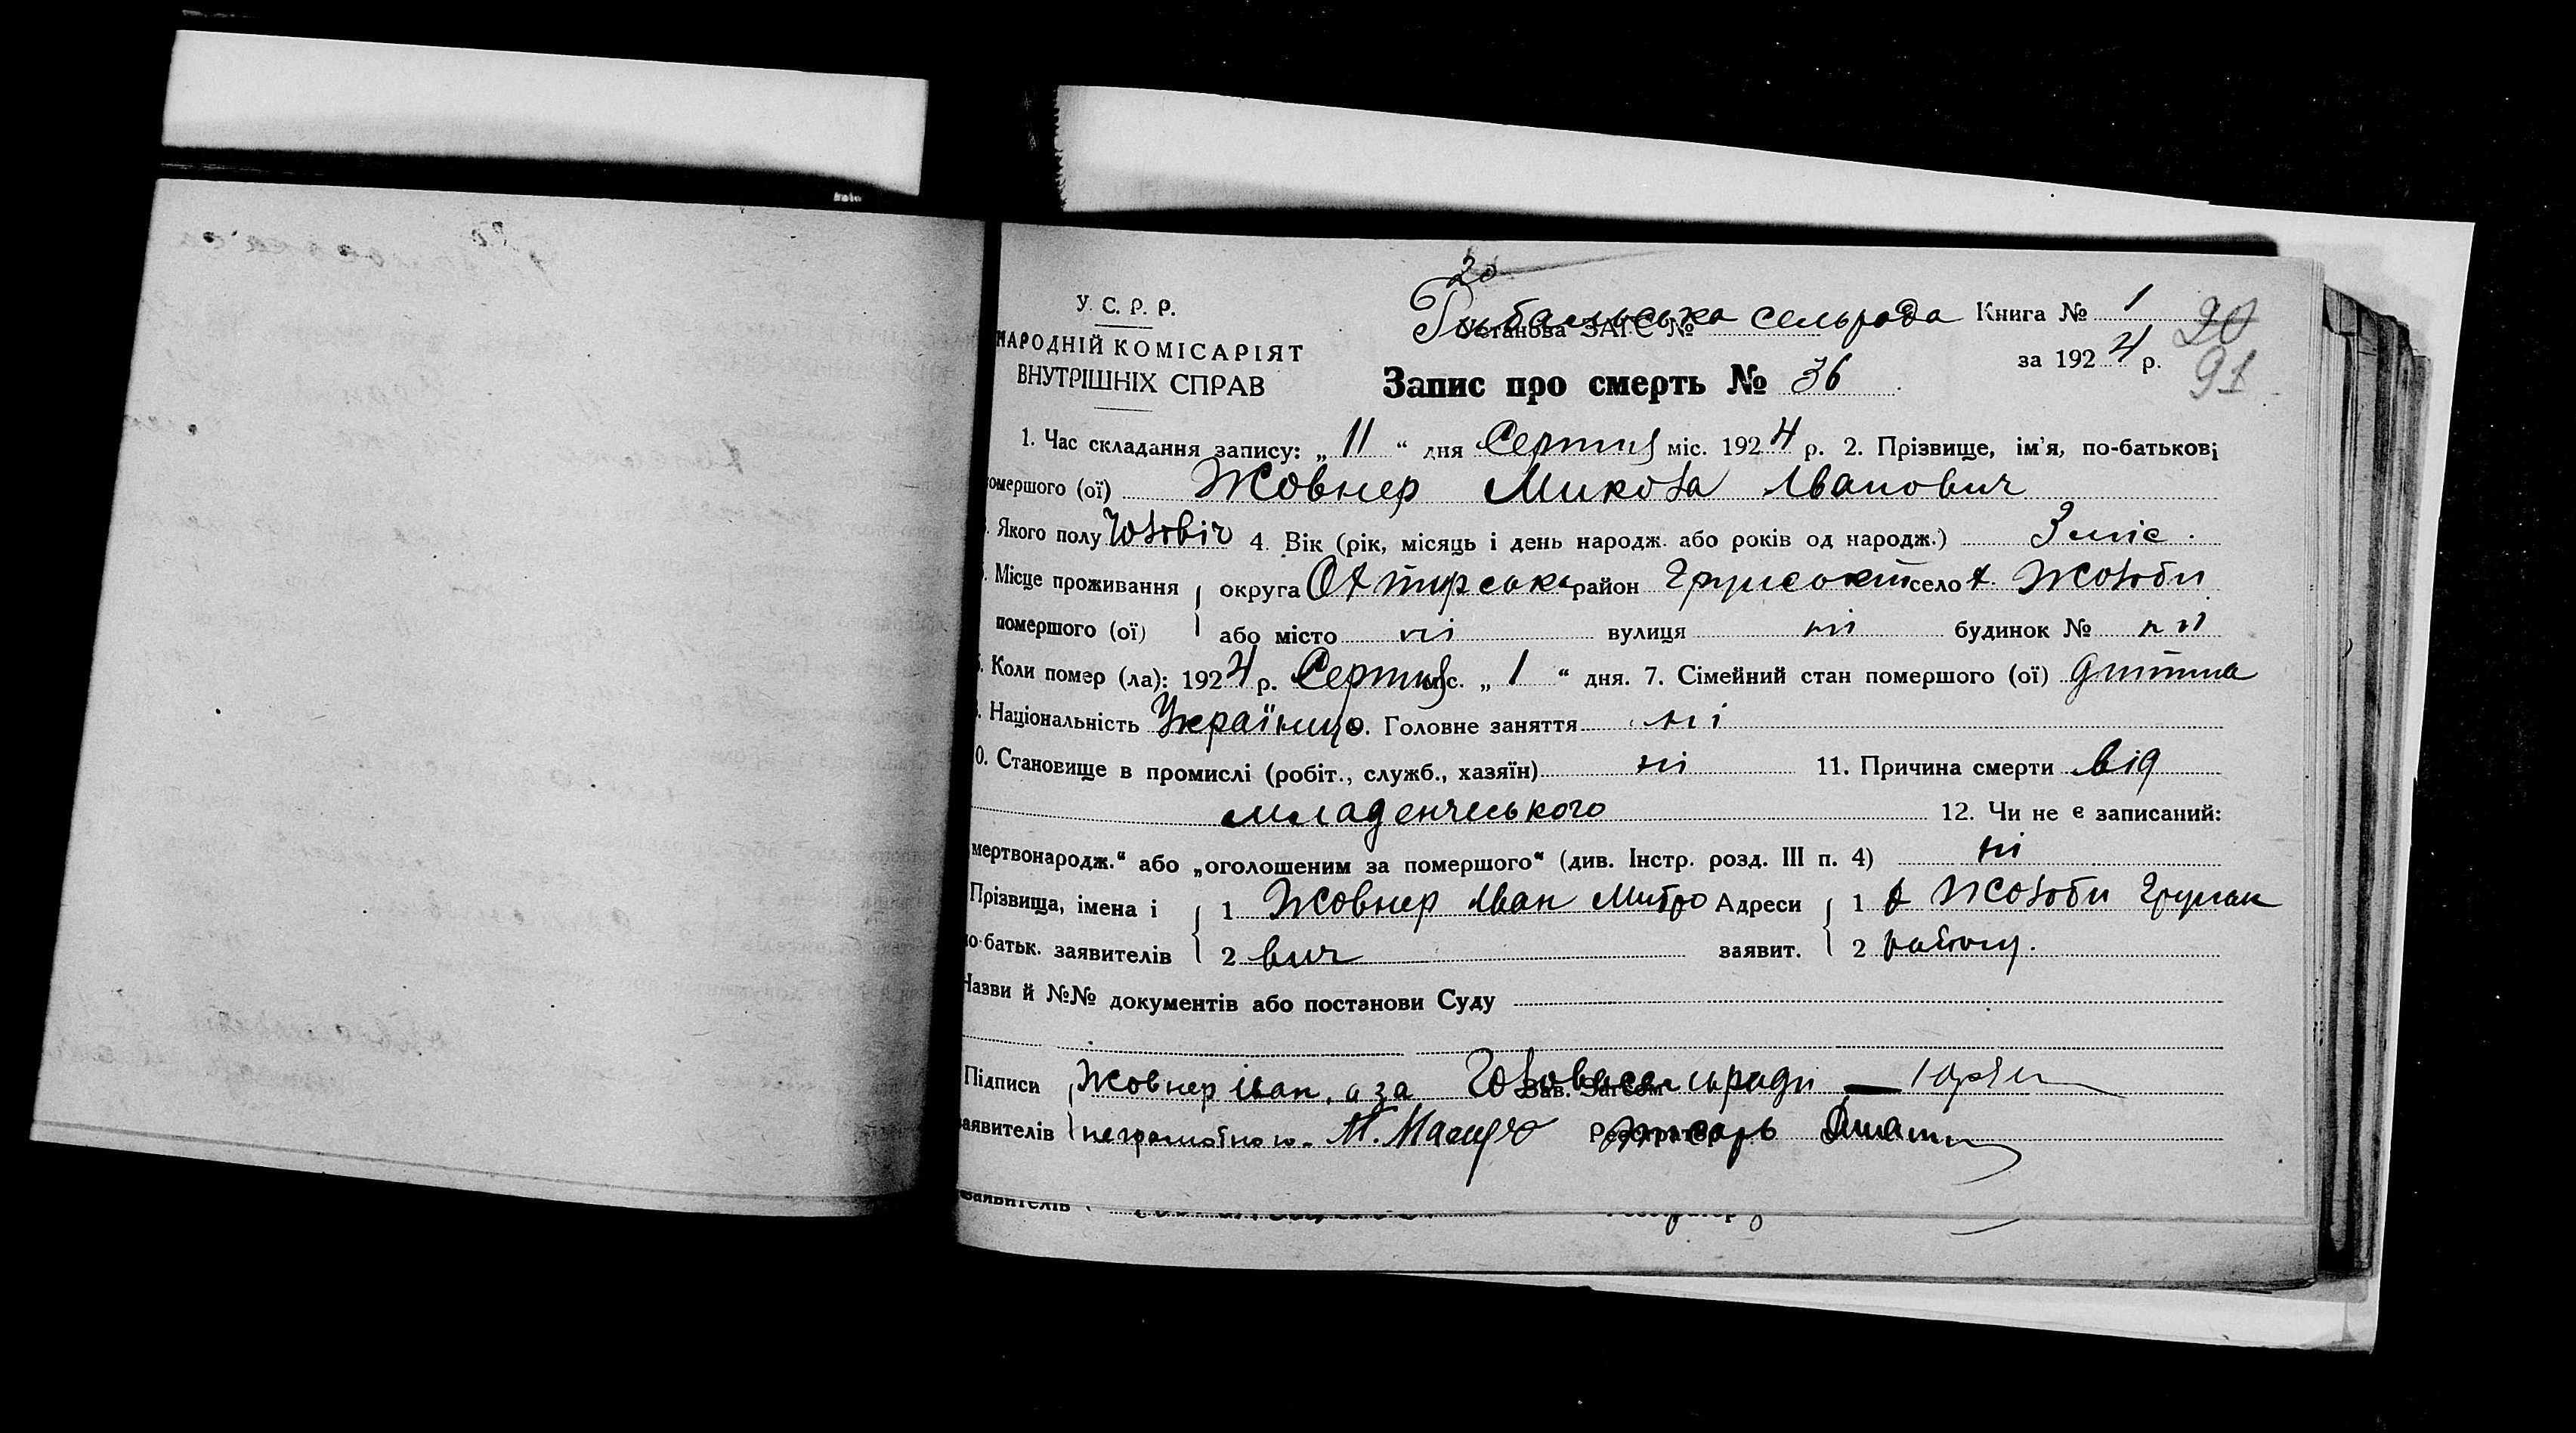 20
У. С. Р. Р.
Рибальська сельрада Книга № 1
Установа ЗАГС №
20
НАРОДНІЙ КОМІСАРІЯТ
за 1924 р.
ВНУТРІШНІХ СПРАВ
Запис про смерть № 36
91
1. Час складання запису: „ 11 “ дня Серпня міс. 1924 р. 2. Прізвище, ім'я, по-батькові
омершого (ої) Жовнер Микола Іванович
. Якого полу Чоловіч 4. Вік (рік, місяць і день народж. або років од народж.) 3 міс.
. Місце проживання округа Охтирська район Грунський село х. Жолоби
помершого (ої) або місто ні вулиця ні будинок № ні
. Коли помер (ла): 1924 р. Серпня міс. „ 1 “ дня. 7. Сімейний стан помершого (ої) дитина
. Національність Українец . Головне заняття ні
0. Становище в промислі (робіт., служб., хазяїн) ні 11. Причина смерти від
младенчеського 12. Чи не є записаний:
мертвонародж.“ або „оголошеним за помершого“ (див. Інстр. розд. III п. 4) ні
Прізвища, імена і 1 Жовнер Іван Митро Адреси 1 х Жолоби Грунськ
о-батьк. заявителів 2 вич заявит. 2 району.
Назви й №№ документів або постанови Суду
Підписи Жовнер Іван, а за Голова сельради Зав. Загсом
аявителів неграмотного М. Реєстратор писарь
заявителів